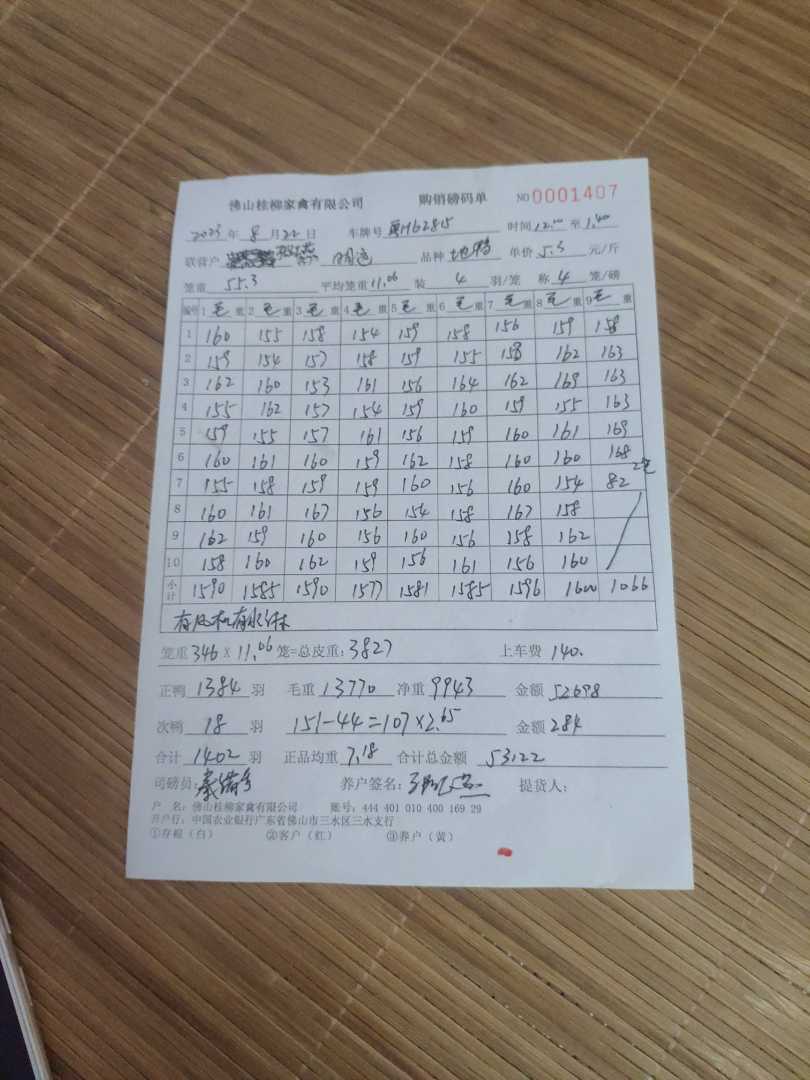 佛山桂柳家禽有限公司 购销磅码单 NO 0001407
2023 年 8 月 22 日 车牌号 H62815 时间 12.00 至 1.40
联营户 客户 品种 单价 5.3 元/斤
笼重 55.3 平均笼重 11.06 装 4 羽/笼 称 4 笼/磅
编号 1 毛 重 2 毛 重 3 毛 重 4 毛 重 5 毛 重 6 毛 重 7 毛 重 8 毛 重 9 毛 重
1 160 155 158 154 159 158 156 159 158
2 159 154 157 158 159 155 158 162 163
3 162 160 153 161 156 164 162 169 163
4 155 162 157 154 159 160 159 155 163
5 159 155 157 161 156 159 160 161 169
6 160 161 160 159 162 158 160 160 168
7 155 158 159 159 160 156 160 154 82 2笼
8 160 161 167 156 154 158 167 158
9 162 159 160 156 160 156 158 162
10 158 160 162 159 156 161 156 160
小计 1590 1585 1590 1577 1581 1585 1596 1600 1066
有风机有水淋
笼重 346 X 11.06 笼=总皮重: 3827 上车费 140.
正鸭 1384 羽 毛重 13770 净重 9943 金额 52698
次鸭 18 羽 151-44=107×2.65 金额 284
合计 1402 羽 正品均重 7.18 合计总金额 53122
司磅员: 养户签名: 提货人:
户 名: 佛山桂柳家禽有限公司 账号: 444 401 010 400 169 29
开户行: 中国农业银行广东省佛山市三水区三水支行
①存根（白） ②客户（红） ③养户（黄）